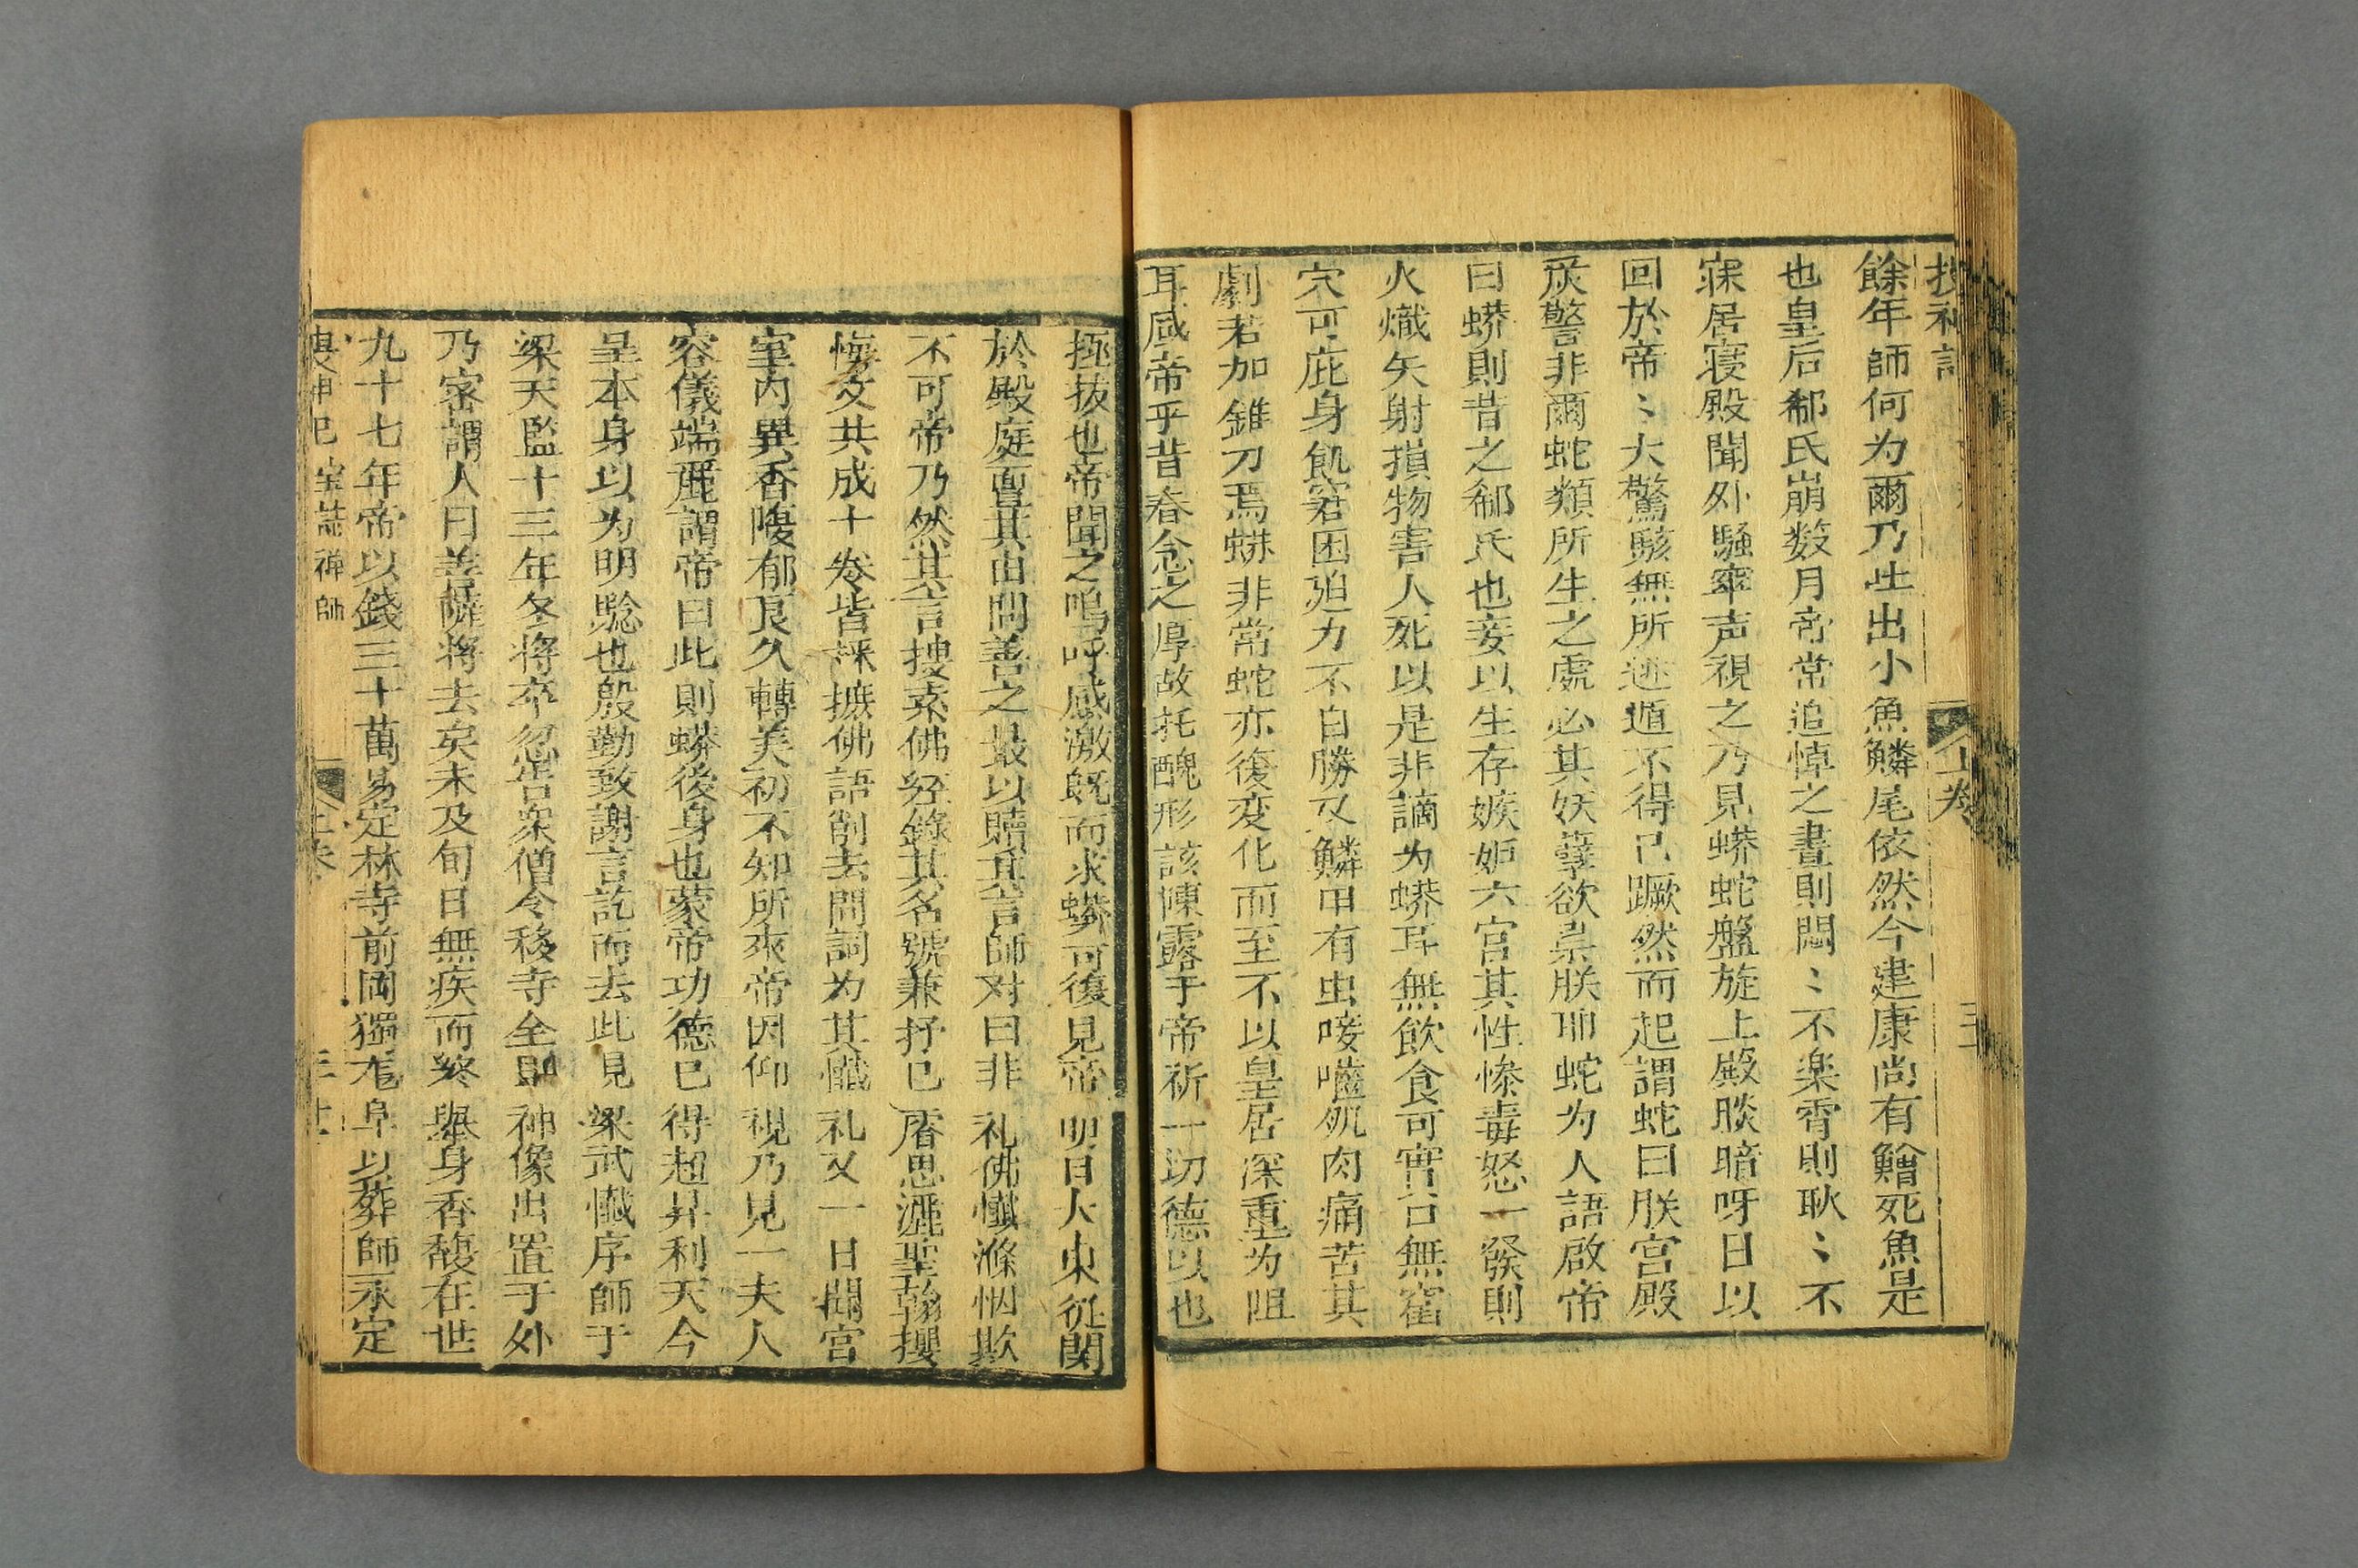 搜神記
上卷
餘年師何为爾乃吐出小魚鱗尾依然今建康尚有鱠死魚是
也皇后郗氏崩数月帝常追悼之晝則悶〻不楽霄則耿〻不
寐居寝殿聞外騷窣声視之乃見蟒蛇盤旋上殿睒暗呀日以
回於帝〻大驚駭無所逃遁不得已蹶然而起謂蛇曰朕宫殿
严警非爾蛇類所生之處必其妖孽欲祟朕耶蛇为人語啟帝
曰蟒則昔之郗氏也妾以生存嫉妬六宫其性慘毒怒一發則
火熾矢射損物害人死以是非謫为蟒耳無飲食可實口無窟
穴可庇身飢窘困廹力不自勝又鱗甲有虫唼囓肌肉痛苦其
劇若加錐刀焉蟒非常蛇亦復変化而至不以皇居深重为阻
耳感帝乎昔眷念之厚故托醜形該陳露于帝祈一切德以也
拯拔也帝聞之嗚呼感激既而求蟒可復見帝明日大束徔関
於殿庭宣其由問善之最以贖其言師对曰非礼佛懺滌悃欵
不可帝乃然其言搜索佛经錄其名號兼抒巳屠思灑聖翰撄
悔文共成十卷皆採摭佛語削去閒詞为其懺礼又一日聞宫
室内異香馥郁良久轉美初不知所來帝因仰視乃見一夫人
容儀端麗謂帝曰此則蟒後身也蒙帝功德已得超昇利天今
呈本身以为明騐也殷勤致謝言訖而去此見梁武懺序師于
梁天監十三年冬将卒忽告衆僧令移寺全剛神像出置于外
乃宻謂人曰菩薩将去矣未及旬日無疾而終舉身香馥在世
九十七年帝以錢三十萬易定林寺前岡獨龙阜以葬師永定
寳誌禅師